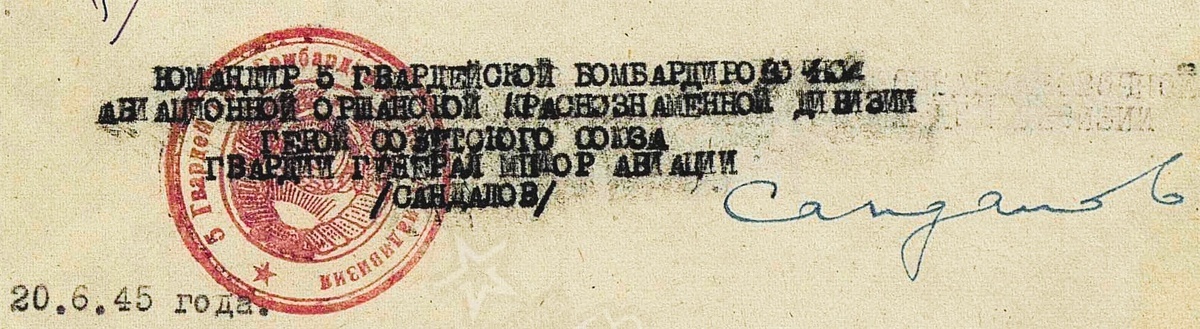 КОМАНДИР 5 ГВАРДЕЙСКОЙ БОМБАРДИРОВОЧНОЙ
АВИАЦИОННОЙ ОРШАНСКОЙ КРАСНОЗНАМЕННОЙ ДИВИЗИИ
ГЕРОЙ СОВЕТСКОГО СОЮЗА
ГВАРДИИ ГЕНЕРАЛ МАЙОР АВИАЦИИ
/САНДАЛОВ/
Сандалов
5 Гвардей Бомбард иадивизия
20.6.45 года.